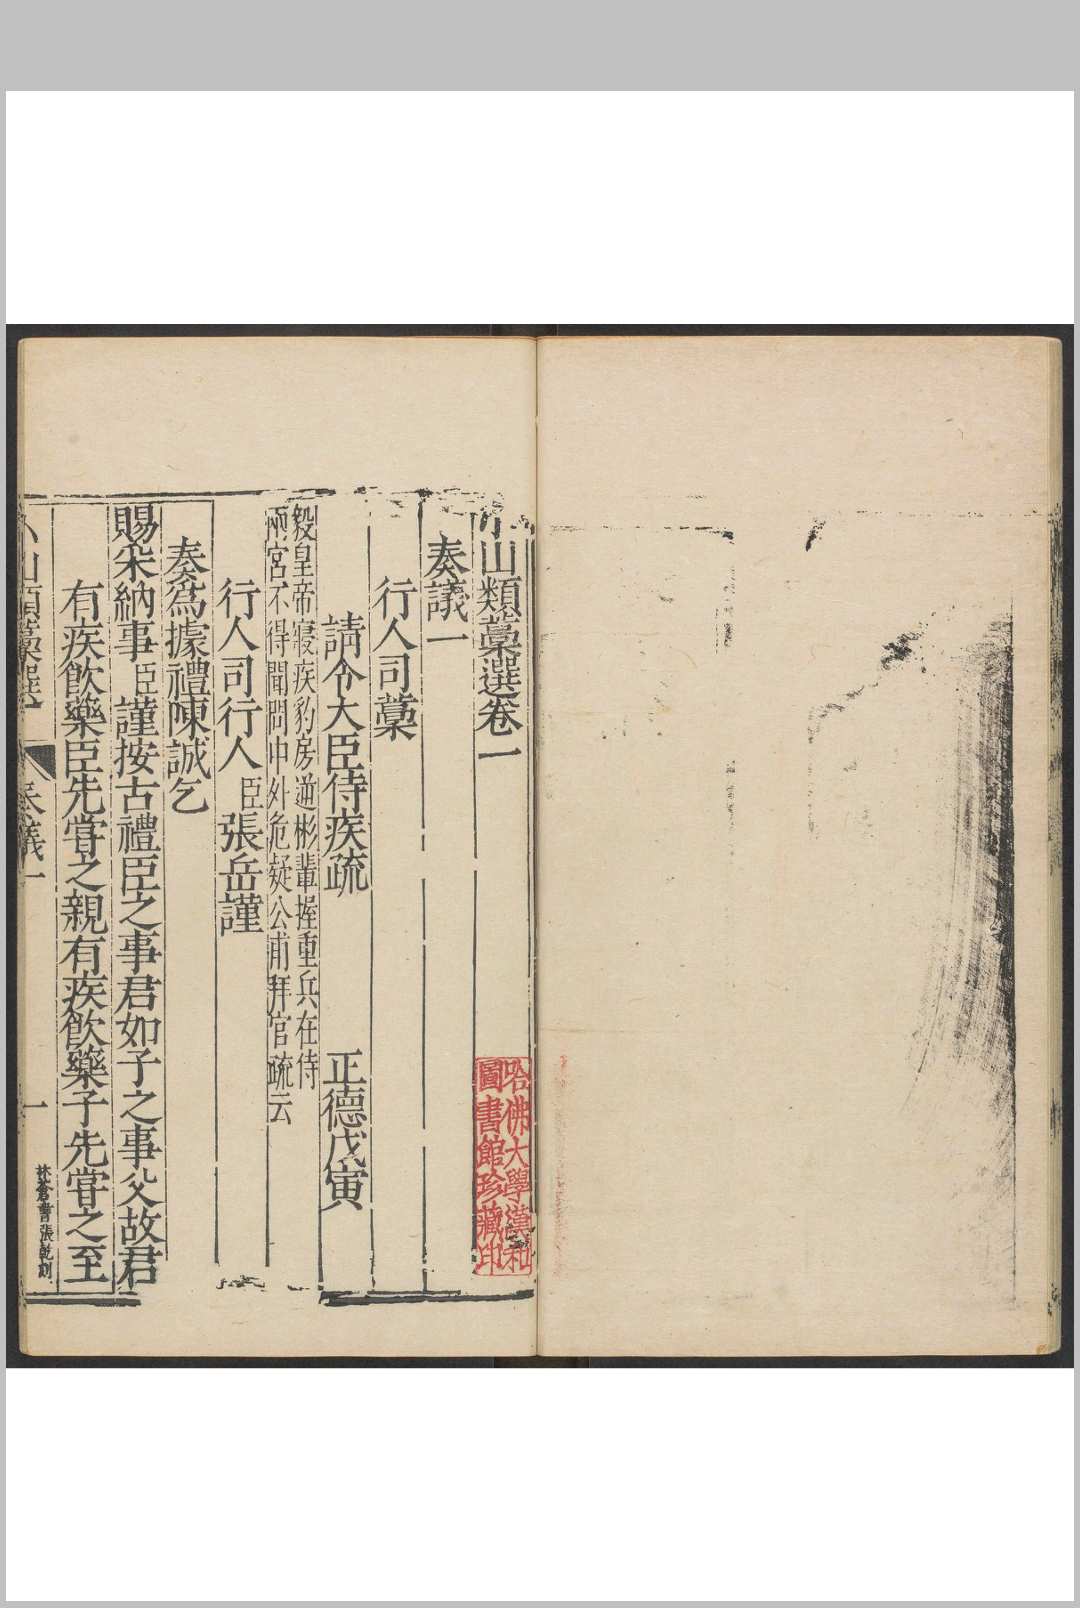 小山類藁選卷一
奏議一
行人司藁
請令大臣侍疾疏 正德戊寅
毅皇帝寢疾豹房逆彬輩握重兵在侍
兩宮不得聞問中外危疑公甫拜官疏云
行人司行人臣張岳謹
奏爲據禮陳誠乞
賜采納事臣謹按古禮臣之事君如子之事父故君
有疾飲藥臣先嘗之親有疾飲藥子先嘗之至
小山類藁選 奏議一 一
林蒼書張乾刻
哈佛大學漢和
圖書館珍藏印